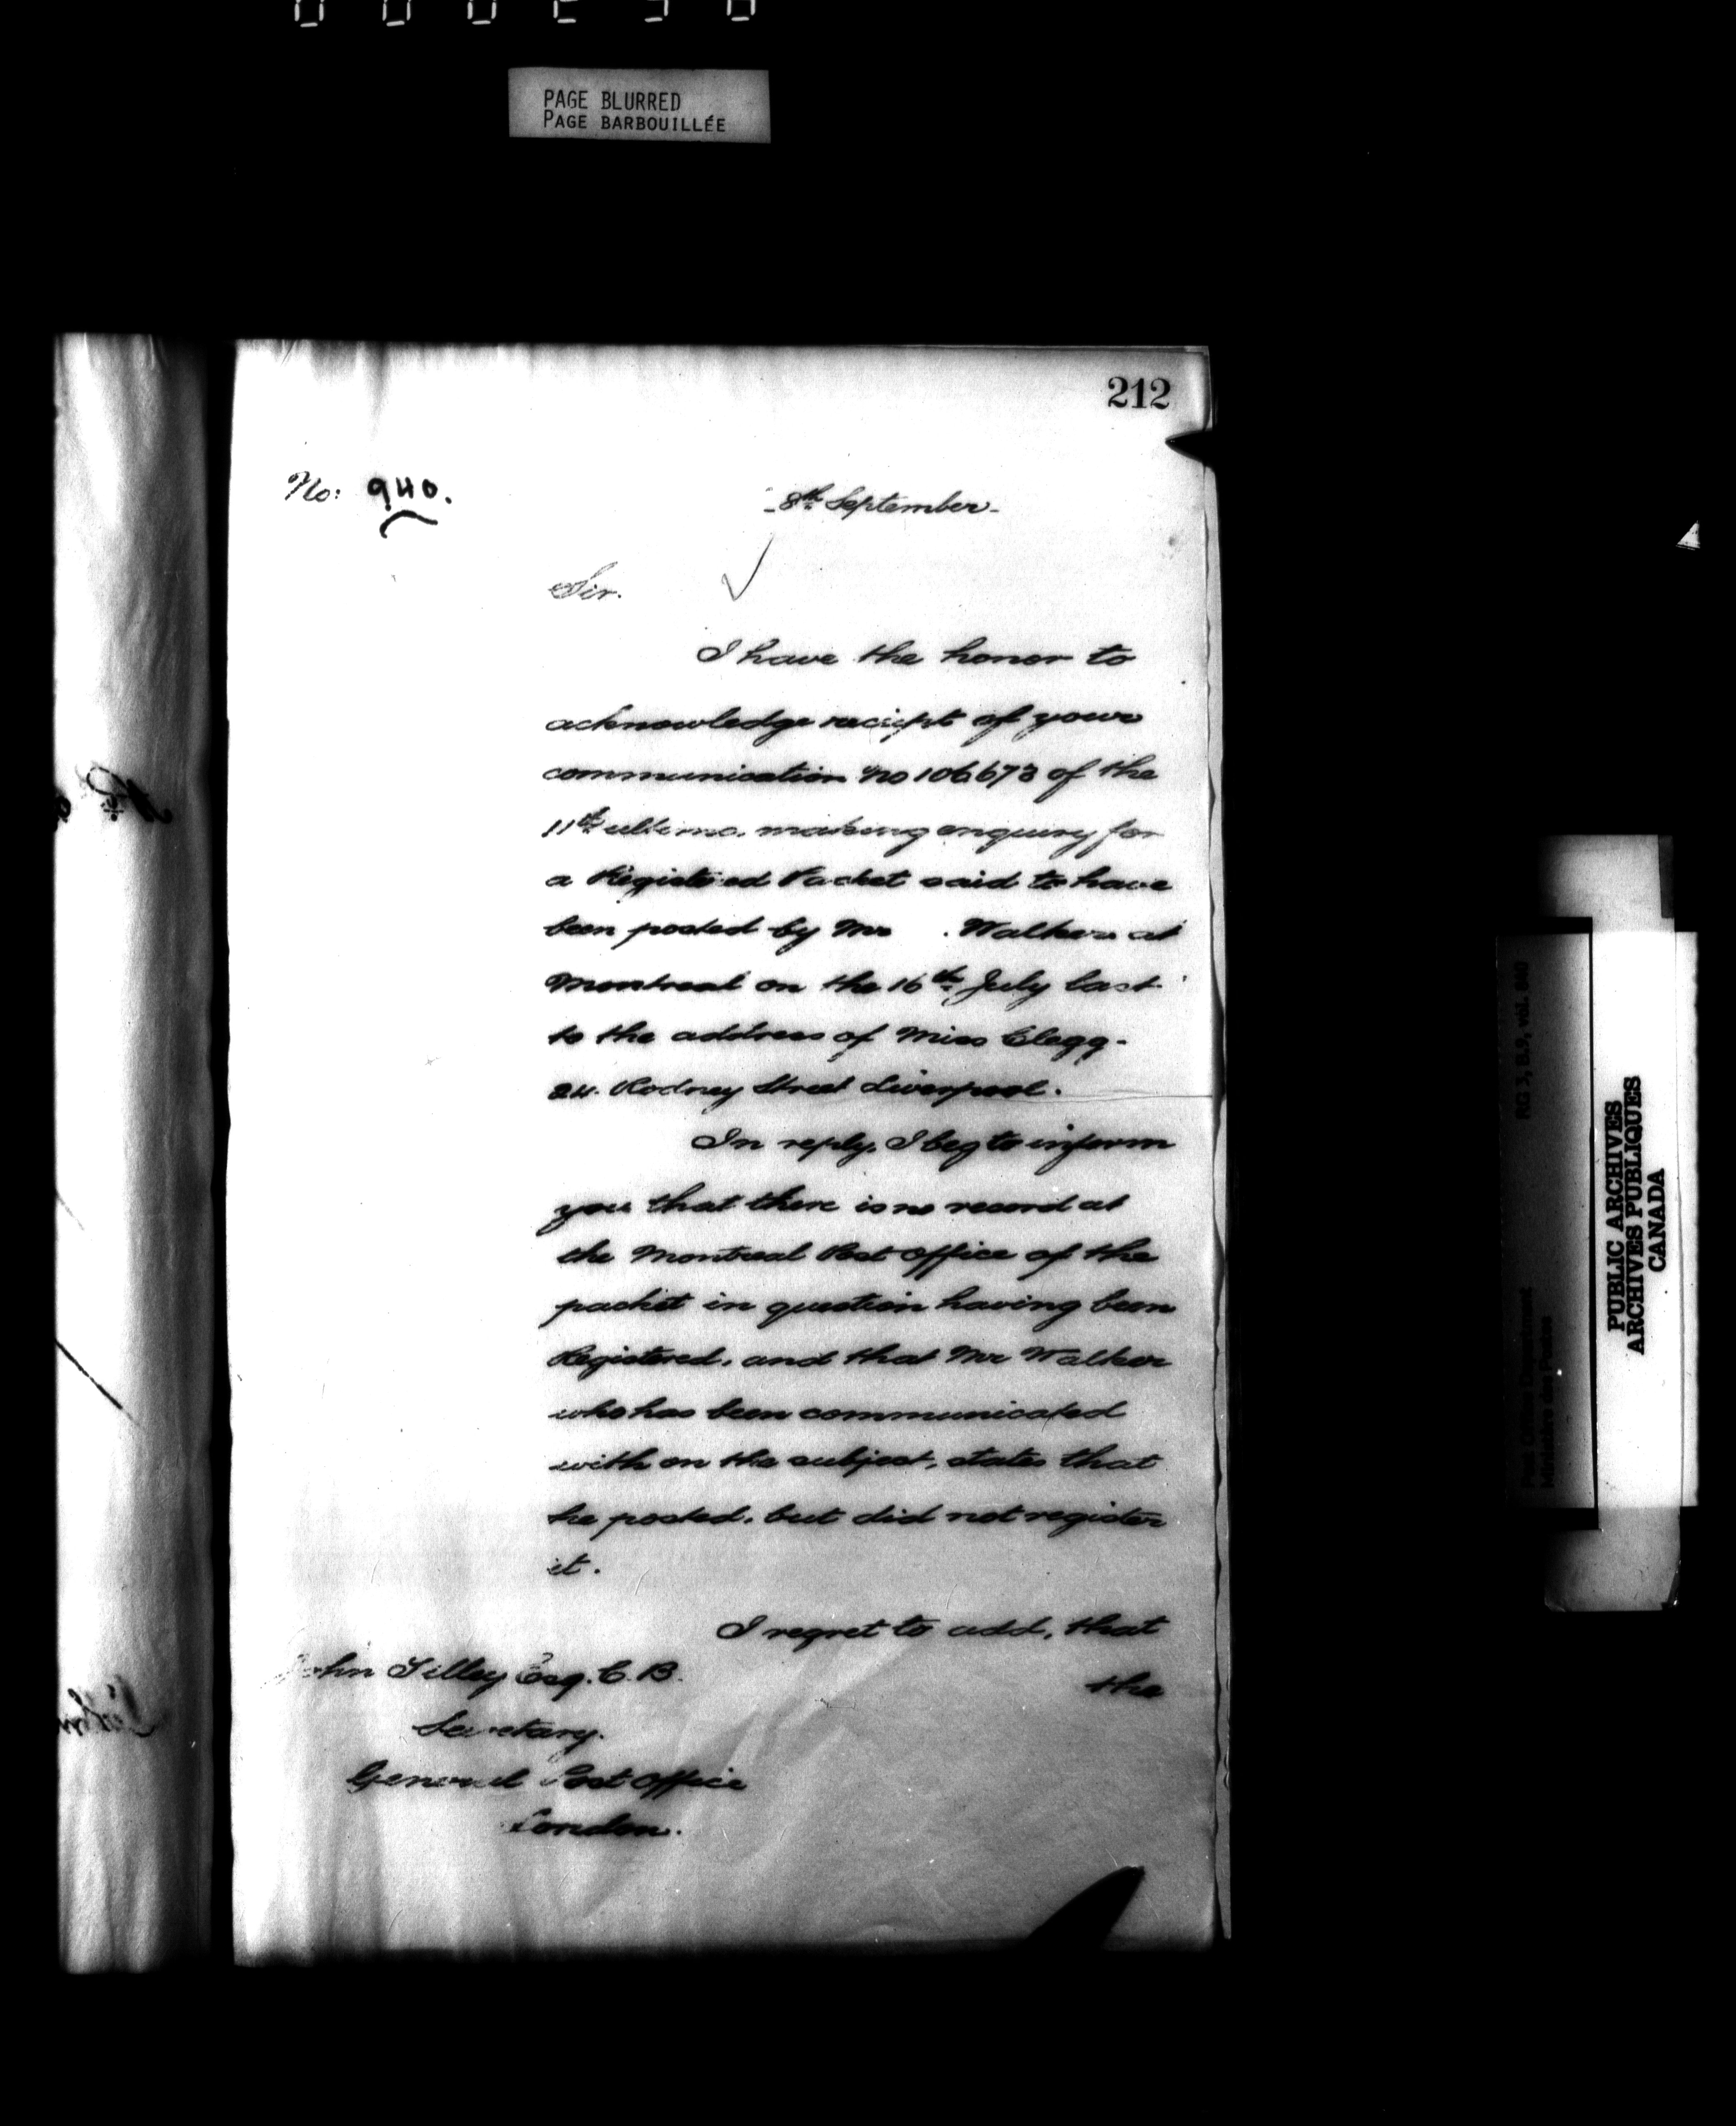 PAGE BLURRED
PAGE BARBOUILLÉE
212
No: 940.
8th September
Sir.
I have the honor to
acknowledge reciept of your
communication No 106673 of the
11th ultimo, making enquiry for
a Registered Packet said to have
been posted by Mr . Walker at
Montreal on the 16th July last
to the address of Miss Clegg-
24. Rodney Street Liverpool.
In reply, I beg to inform
you that there is no record at
the Montreal Post Office of the
packet in question having been
Registered, and that Mr Walker
who has been communicated
with on the subject, states that
he posted, but did not register
it.
I regret to add, that
the
John Tilley Esq. C.B.
Secretary.
General Post Office
London.
RG 3, B.9, vol.
Post Office Department
Ministère des Postes
PUBLIC ARCHIVES
ARCHIVES PUBLIQUES
CANADA